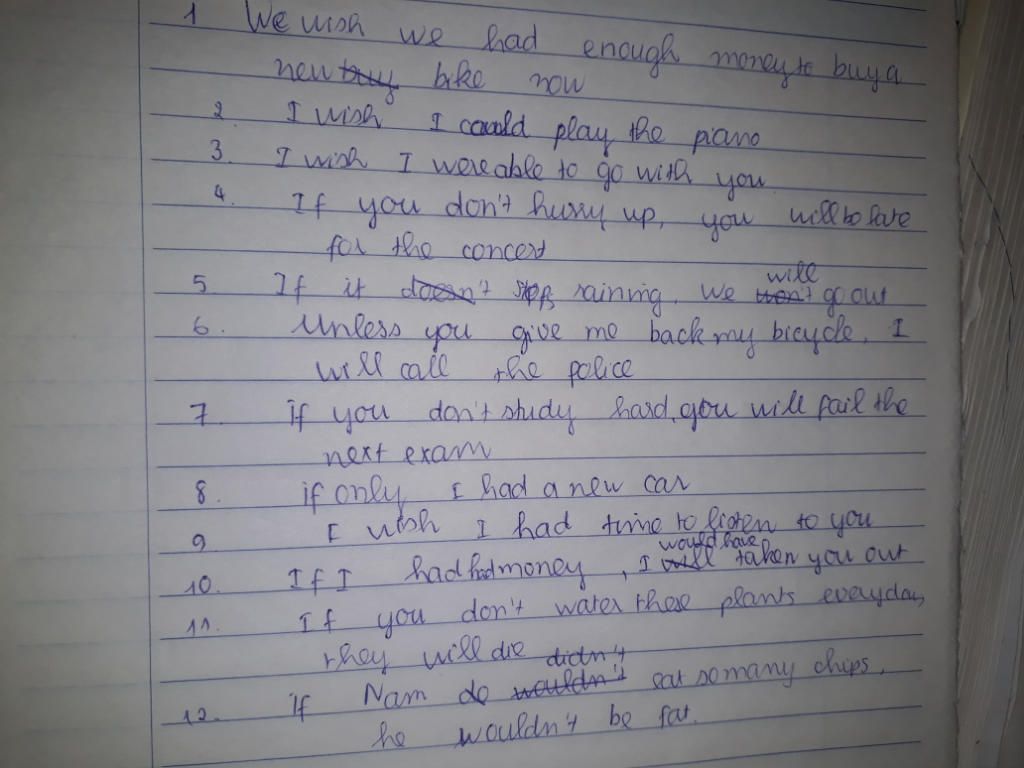 1 We wish we had enough money to buy a
new bike now
2. I wish I could play the piano
3. I wish I were able to go with you
4. If you don't hurry up, you will be late
for the concert
will
5. If it doesn't stops raining. We won't go out
6. Unless you give me back my bicycle, I
will call the police
7. if you don't study hard, you will fail the
next exam
8. if only I had a new car
9 I wish I had time to listen to you
would have
10. If I had had money, I will taken you out
11. If you don't water these plants everyday,
they will die
didn't
12. if Nam do wouldn't eat so many chips,
he wouldn't be fat.